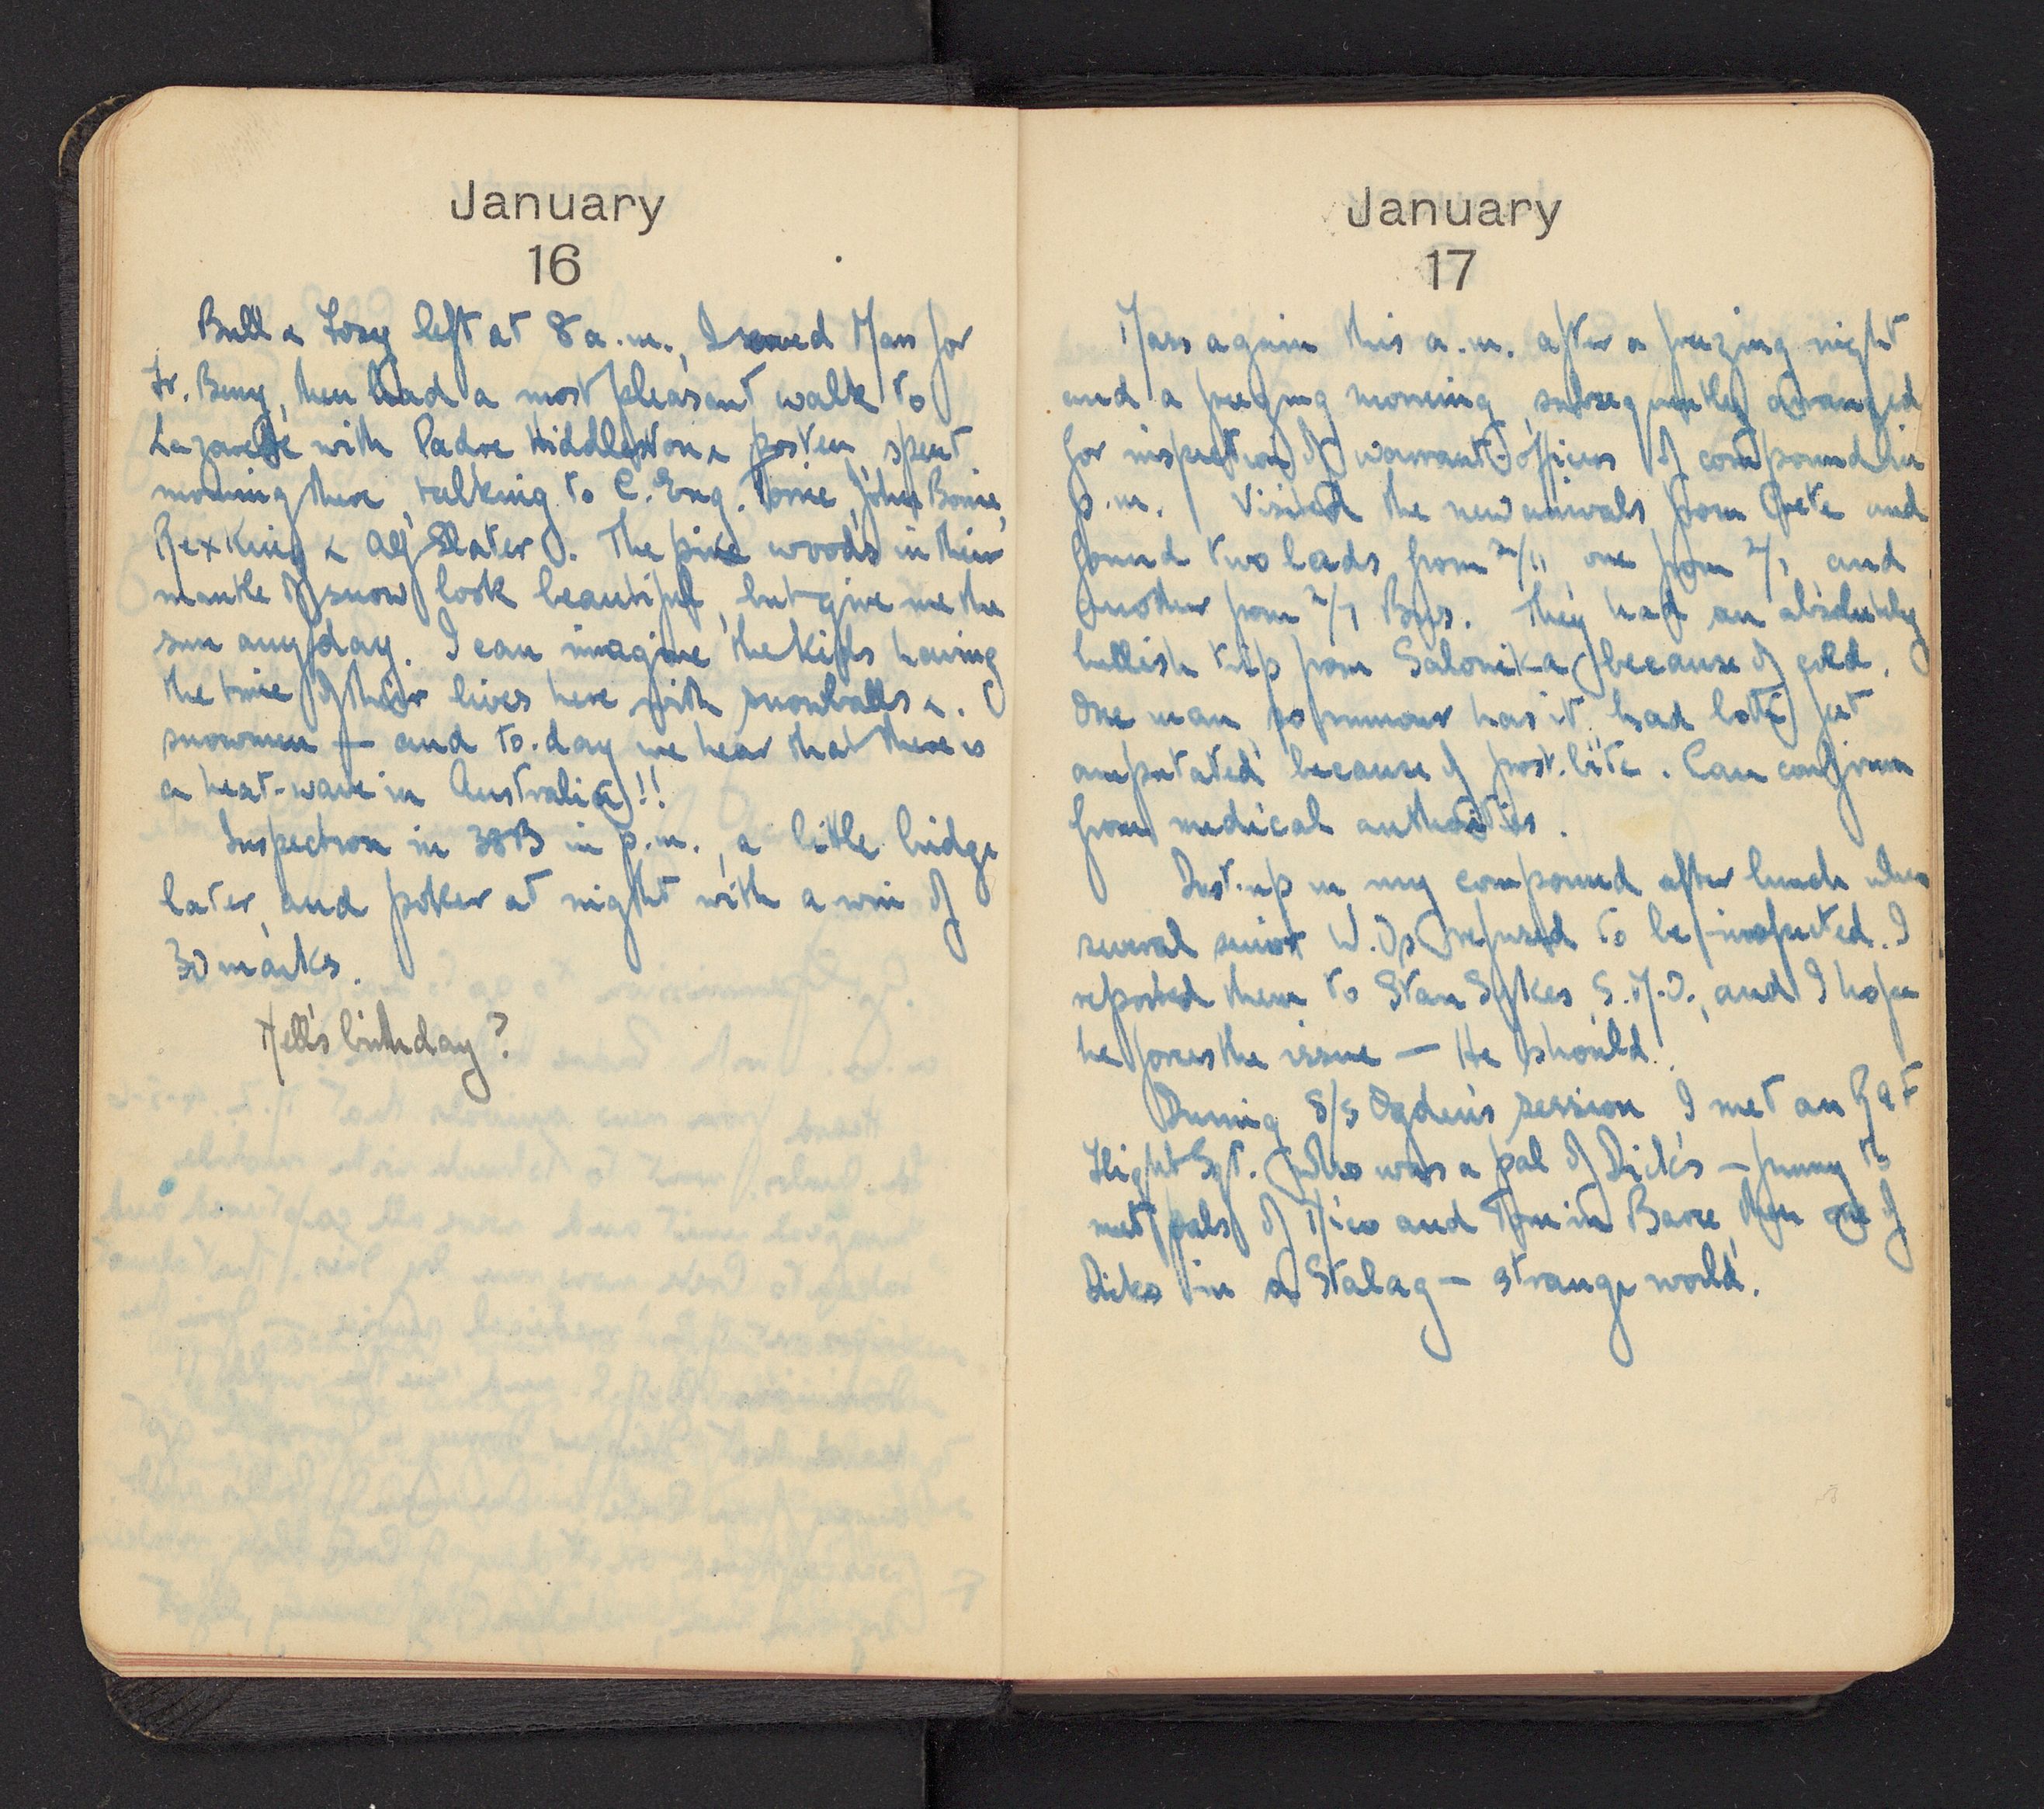 January
16
Bull & Foxy left at 8 a.m., I served Mass for
Fr. Beny, then had a most pleasant walk to
Lazarette with Padre Hiddlestone & posten, spent
morning there, talking to C. Eng. John
Rex King & Alf Slater. The pine woods in their
mantle of snow look beautiful, but give me the
sun any day. I can imagine the kids having
the time of their lives here with snowballs &.
snowmen — and to-day we hear that there is
a heat-wave in Australia!!
Inspection in 38B in p.m., a little bridge
later, and poker at night with a win of
30 marks.
Nell's birthday?
January
17
Mass again this a.m. after a freezing night
and a freezing morning, subsequently arranged
for inspection of warrant-officers of compound in
p.m. Visited the new arrivals from Crete and
found two lads from 2/11, one from 2/1, and
another from 2/7 Bns. They had an absolutely
hellish trip from Salonika because of cold.
One man, so rumour has it, had both feet
amputated because of frost-bite. Can confirm
from medical authorities.
Dust-up in my compound after lunch when
several senior W.Os refused to be inspected. I
reported them to Stan Sykes, S.M.O., and I hope
he forces the issue — He should.
During S/S Ogden's session I met an
Flight Sgt. who was a pal of Dick's — funny to
meet pals of Mico and Tom in Barce, then one of
Dicks in a Stalag — strange world.